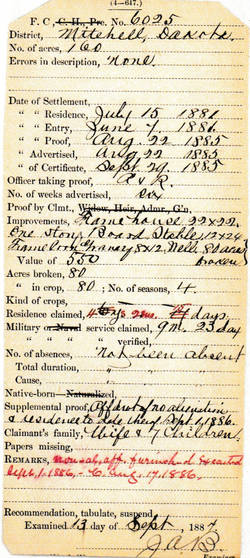 (4—617.)
F. C., C. H., Pre. No. 6025
District, Mitchell, Dakota.
No. of acres, 160
Errors in description, None.
Date of Settlement,
" " Residence, July 15 1881
" " Entry, June 7 1886
" " Proof, Aug. 22 1885
" Advertised, Aug 22 1885
" of Certificate, Sept. 29 1885
Officer taking proof, R.
No. weeks advertised, six
Proof by Clmt., Widow, Heir, Admr., G'n,
Improvements, Frame house 22x22.
One story Board Stable 12x24
Frame Granary 8x12 Well. 80 acres
Value of 550 broken
Acres broken, 80
" in crop, 80; No. of seasons, 4
Kind of crops,
Residence claimed, 4 yrs 2 mo. days
Military or Naval service claimed, 9 m. 23 day
" " " verified,
No. of absences, not been absent
Total duration,
Cause,
Native-born Naturalized,
Supplemental proof, Affdavt of no alienation
& residence to date Sept 1, 1886.
Claimant's family, Wife & 7 Children
Papers missing,
REMARKS, aff. furnished Executed
Sept. 1, 1886. Aug 17. 1886.
Recommendation, tabulate, suspend
Examined 13 day of Sept, 1887
J. A. B.